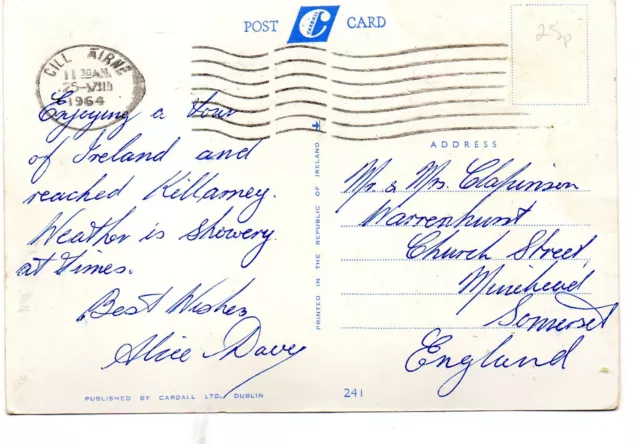 POST CARD
CARDALL
25p
CILL AIRNE
11 30AM
25-VIII
1964
Enjoying a tour
of Ireland and
reached Killarney.
Weather is showery
at times.
Best Wishes
Alice Davey
PRINTED IN THE REPUBLIC OF IRELAND
ADDRESS
Mr. & Mrs. Clapinson
Warrenhurst
Church Street,
Minehead
Somerset
England
PUBLISHED BY CARDALL LTD., DUBLIN
241